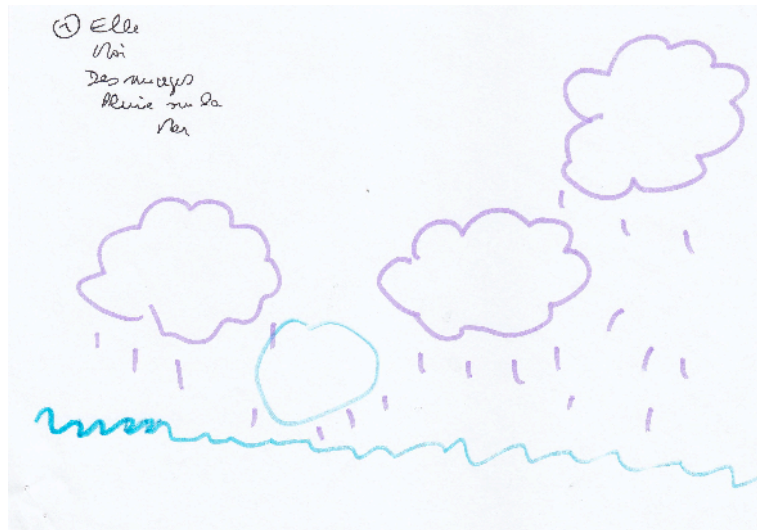 ① Elle
Moi
Des nuages
Pluie sur la
Mer